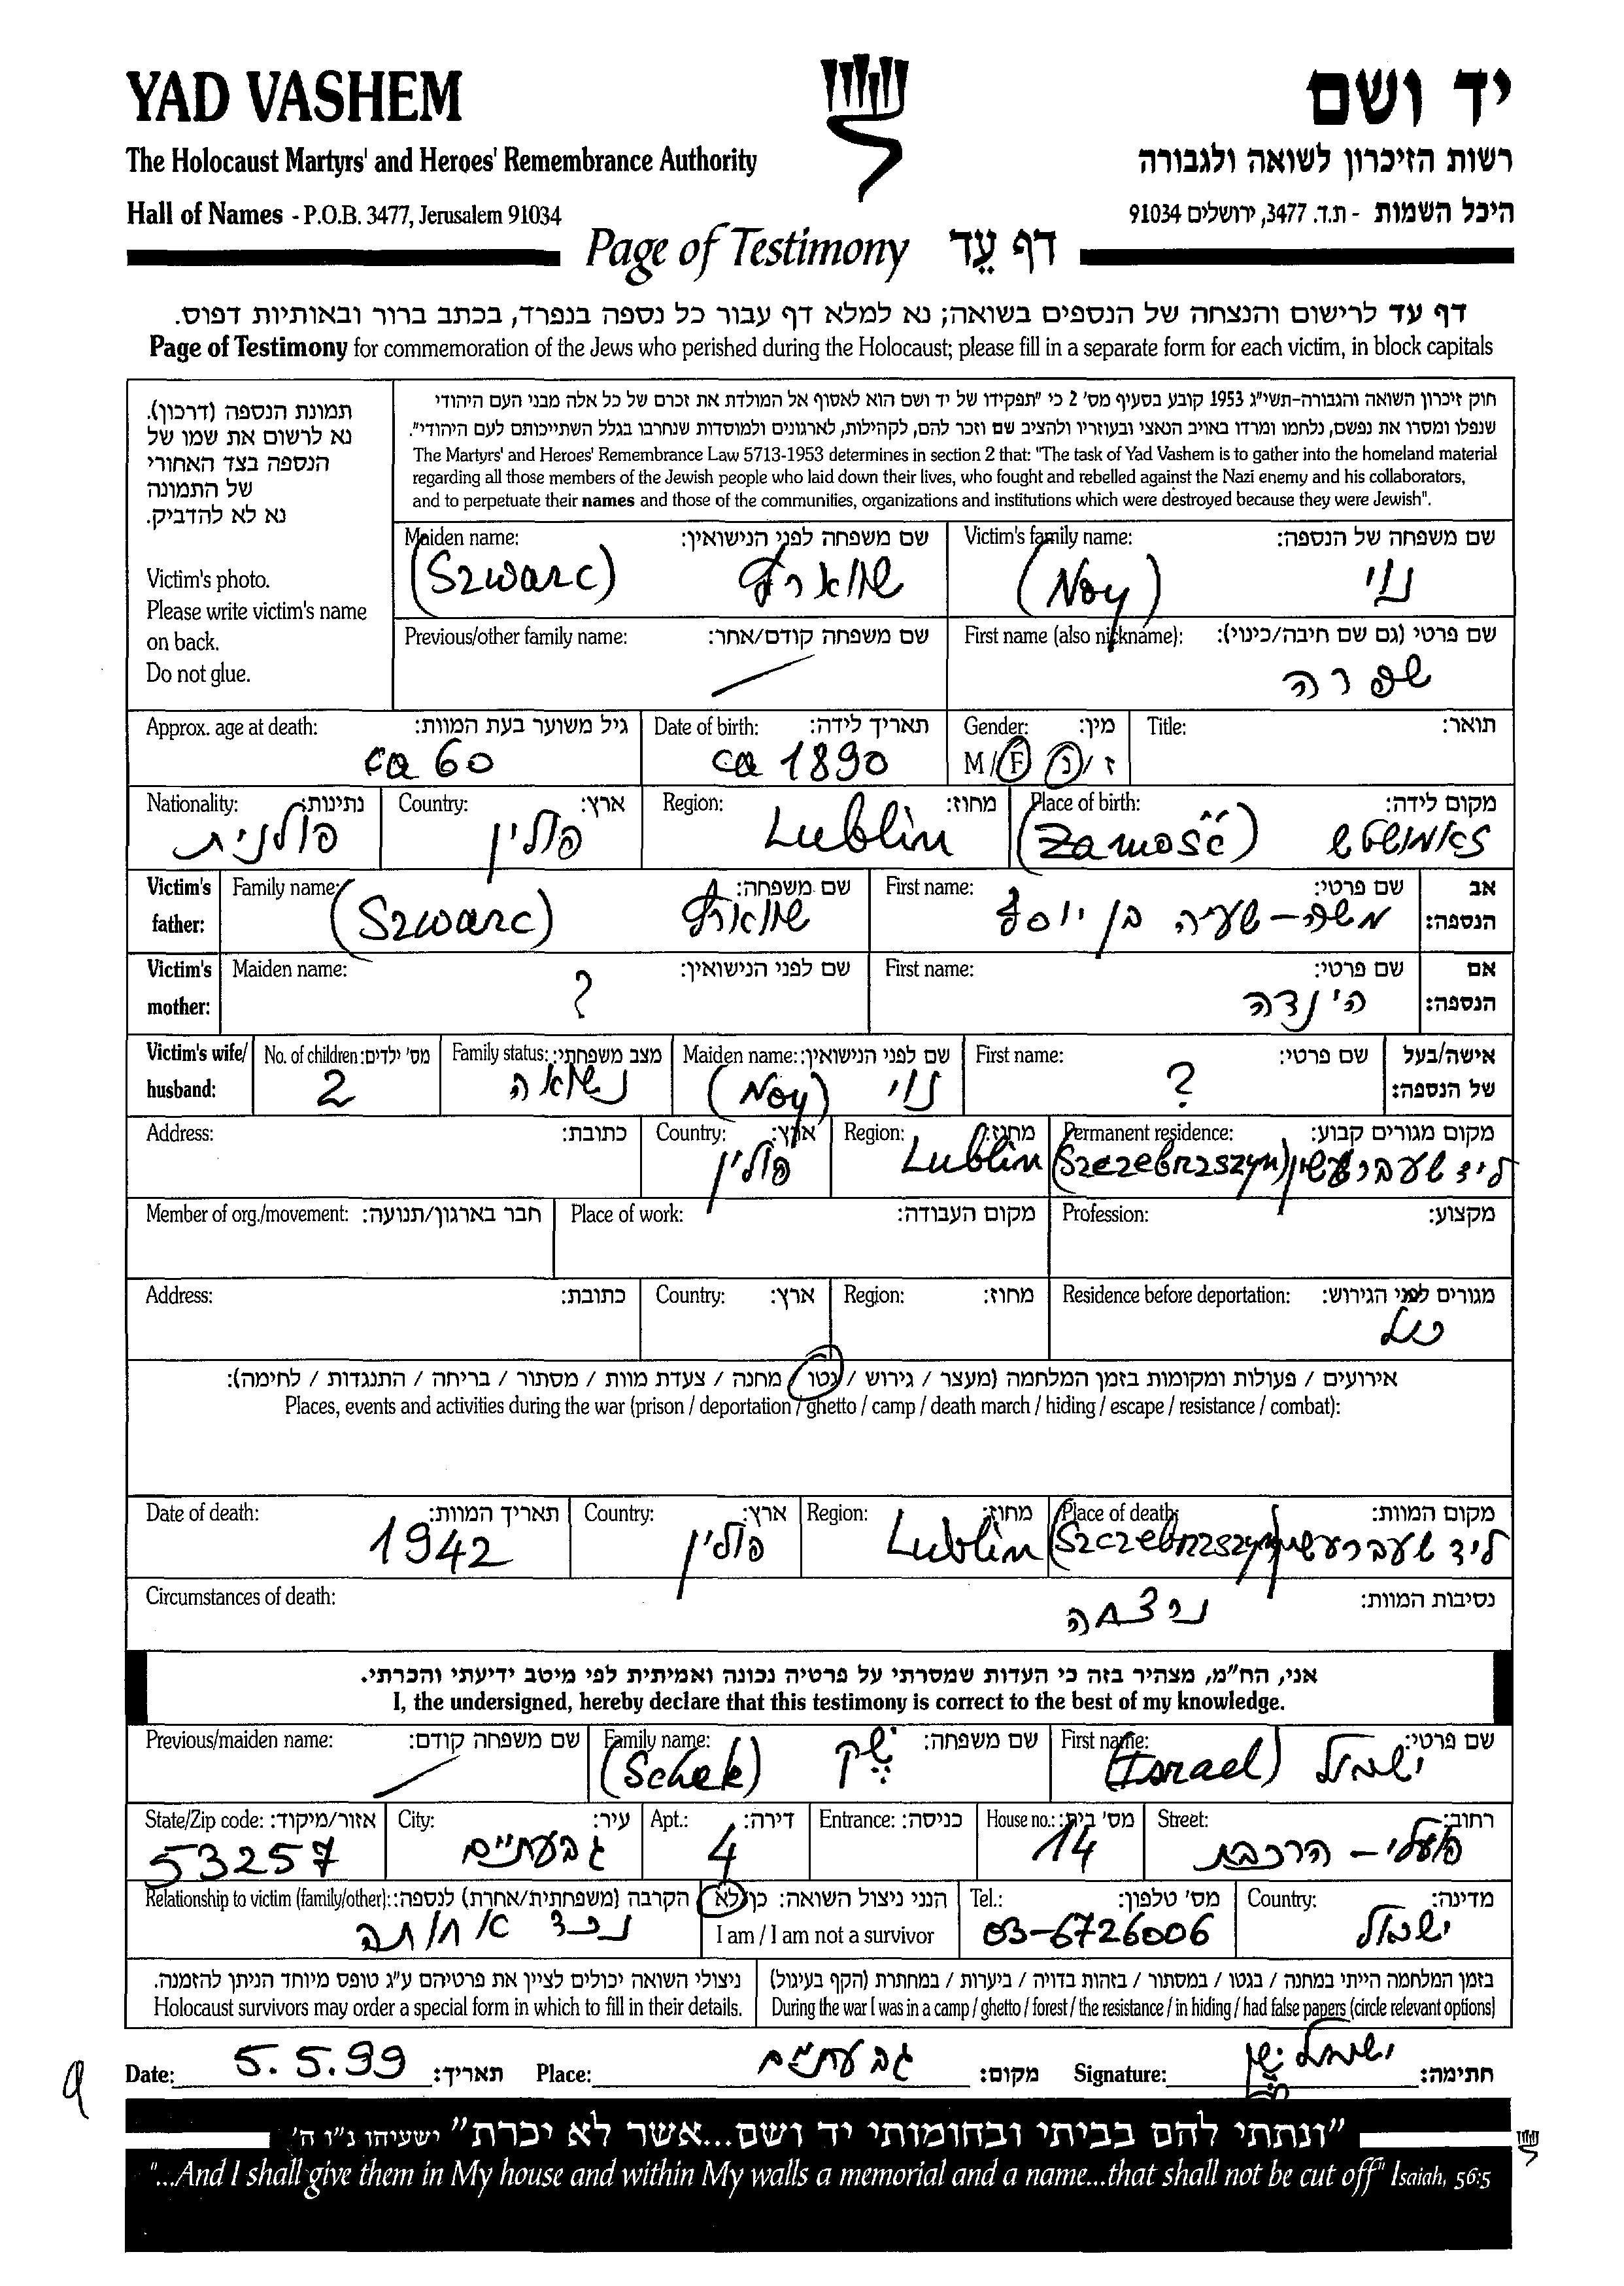 YAD VASHEM
יד ושם
The Holocaust Martyrs' and Heroes' Remembrance Authority
רשות הזיכרון לשואה ולגבורה
Hall of Names - P.O.B. 3477, Jerusalem 91034
היכל השמות - ת.ד. 3477, ירושלים 91034
Page of Testimony דף עֵד
דף עד לרישום והנצחה של הנספים בשואה; נא למלא דף עבור כל נספה בנפרד, בכתב ברור ובאותיות דפוס.
Page of Testimony for commemoration of the Jews who perished during the Holocaust; please fill in a separate form for each victim, in block capitals
תמונת הנספה (דרכון).
נא לרשום את שמו של
הנספה בצד האחורי
של התמונה
נא לא להדביק.
Victim's photo.
Please write victim's name
on back.
Do not glue.
חוק זיכרון השואה והגבורה-תשי"ג 1953 קובע בסעיף מס' 2 כי "תפקידו של יד ושם הוא לאסוף אל המולדת את זכרם של כל אלה מבני העם היהודי
שנפלו ומסרו את נפשם, נלחמו ומרדו באויב הנאצי ובעוזריו ולהציב שם וזכר להם, לקהילות, לארגונים ולמוסדות שנחרבו בגלל השתייכותם לעם היהודי".
The Martyrs' and Heroes' Remembrance Law 5713-1953 determines in section 2 that: "The task of Yad Vashem is to gather into the homeland material
regarding all those members of the Jewish people who laid down their lives, who fought and rebelled against the Nazi enemy and his collaborators,
and to perpetuate their names and those of the communities, organizations and institutions which were destroyed because they were Jewish".
Victim's family name: שם משפחה של הנספה:
נוי (Noy)
Maiden name: שם משפחה לפני הנישואין:
שווארץ (Szwarc)
First name (also nickname): שם פרטי (גם שם חיבה/כינוי):
שפרה
Previous/other family name: שם משפחה קודם/אחר:
Title: תואר:
Gender: מין:
M / F ז / נ
Date of birth: תאריך לידה:
ca 1890
Approx. age at death: גיל משוער בעת המוות:
ca 60
Place of birth: מקום לידה:
זאמושטש (Zamość)
Region: מחוז:
Lublin
Country: ארץ:
פולין
Nationality: נתינות:
פולנית
Victim's father: אב הנספה:
First name: שם פרטי:
משה-שעיה בן יוסף
Family name: שם משפחה:
שווארץ (Szwarc)
Victim's mother: אם הנספה:
First name: שם פרטי:
הינדה
Maiden name: שם לפני הנישואין:
?
Victim's wife/ husband: אישה/בעל של הנספה:
First name: שם פרטי:
?
Maiden name: שם לפני הנישואין:
נוי (Noy)
Family status: מצב משפחתי:
נשואה
No. of children: מס' ילדים:
2
Permanent residence: מקום מגורים קבוע:
ליד שעברעשין (Szczebrzszyn)
Region: מחוז:
Lublin
Country: ארץ:
פולין
Address: כתובת:
Profession: מקצוע:
Place of work: מקום העבודה:
Member of org./movement: חבר בארגון/תנועה:
Residence before deportation: מגורים לפני הגירוש:
כנ"ל
Region: מחוז:
Country: ארץ:
Address: כתובת:
אירועים / פעולות ומקומות בזמן המלחמה (מעצר / גירוש / גטו / מחנה / צעדת מוות / מסתור / בריחה / התנגדות / לחימה):
Places, events and activities during the war (prison / deportation / ghetto / camp / death march / hiding / escape / resistance / combat):
Place of death: מקום המוות:
ליד שעברעשין (Szczebrzszyn)
Region: מחוז:
Lublin
Country: ארץ:
פולין
Date of death: תאריך המוות:
1942
Circumstances of death: נסיבות המוות:
נרצחה
אני, הח"מ, מצהיר בזה כי העדות שמסרתי על פרטיה נכונה ואמיתית לפי מיטב ידיעתי והכרתי.
I, the undersigned, hereby declare that this testimony is correct to the best of my knowledge.
First name: שם פרטי:
ישראל (Israel)
Family name: שם משפחה:
שק (Schek)
Previous/maiden name: שם משפחה קודם:
Street: רחוב:
פועלי-הרכבת
House no.: מס' בית:
14
Entrance: כניסה:
Apt.: דירה:
4
City: עיר:
גבעתיים
State/Zip code: אזור/מיקוד:
53257
Country: מדינה:
ישראל
Tel.: מס' טלפון:
03-6726006
הנני ניצול השואה: כן/לא
I am / I am not a survivor
Relationship to victim (family/other): הקרבה (משפחתית/אחרת) לנספה:
נכד אחותה
בזמן המלחמה הייתי במחנה / בגטו / במסתור / בזהות בדויה / ביערות / במחתרת (הקף בעיגול)
During the war I was in a camp / ghetto / forest / the resistance / in hiding / had false papers (circle relevant options)
ניצולי השואה יכולים לציין את פרטיהם ע"ג טופס מיוחד הניתן להזמנה.
Holocaust survivors may order a special form in which to fill in their details.
Date: 5.5.99 תאריך:
Place: גבעתיים מקום:
Signature: ישראל שק חתימה:
"ונתתי להם בביתי ובחומותי יד ושם...אשר לא יכרת" ישעיהו נ"ו ה'
"...And I shall give them in My house and within My walls a memorial and a name...that shall not be cut off" Isaiah, 56:5